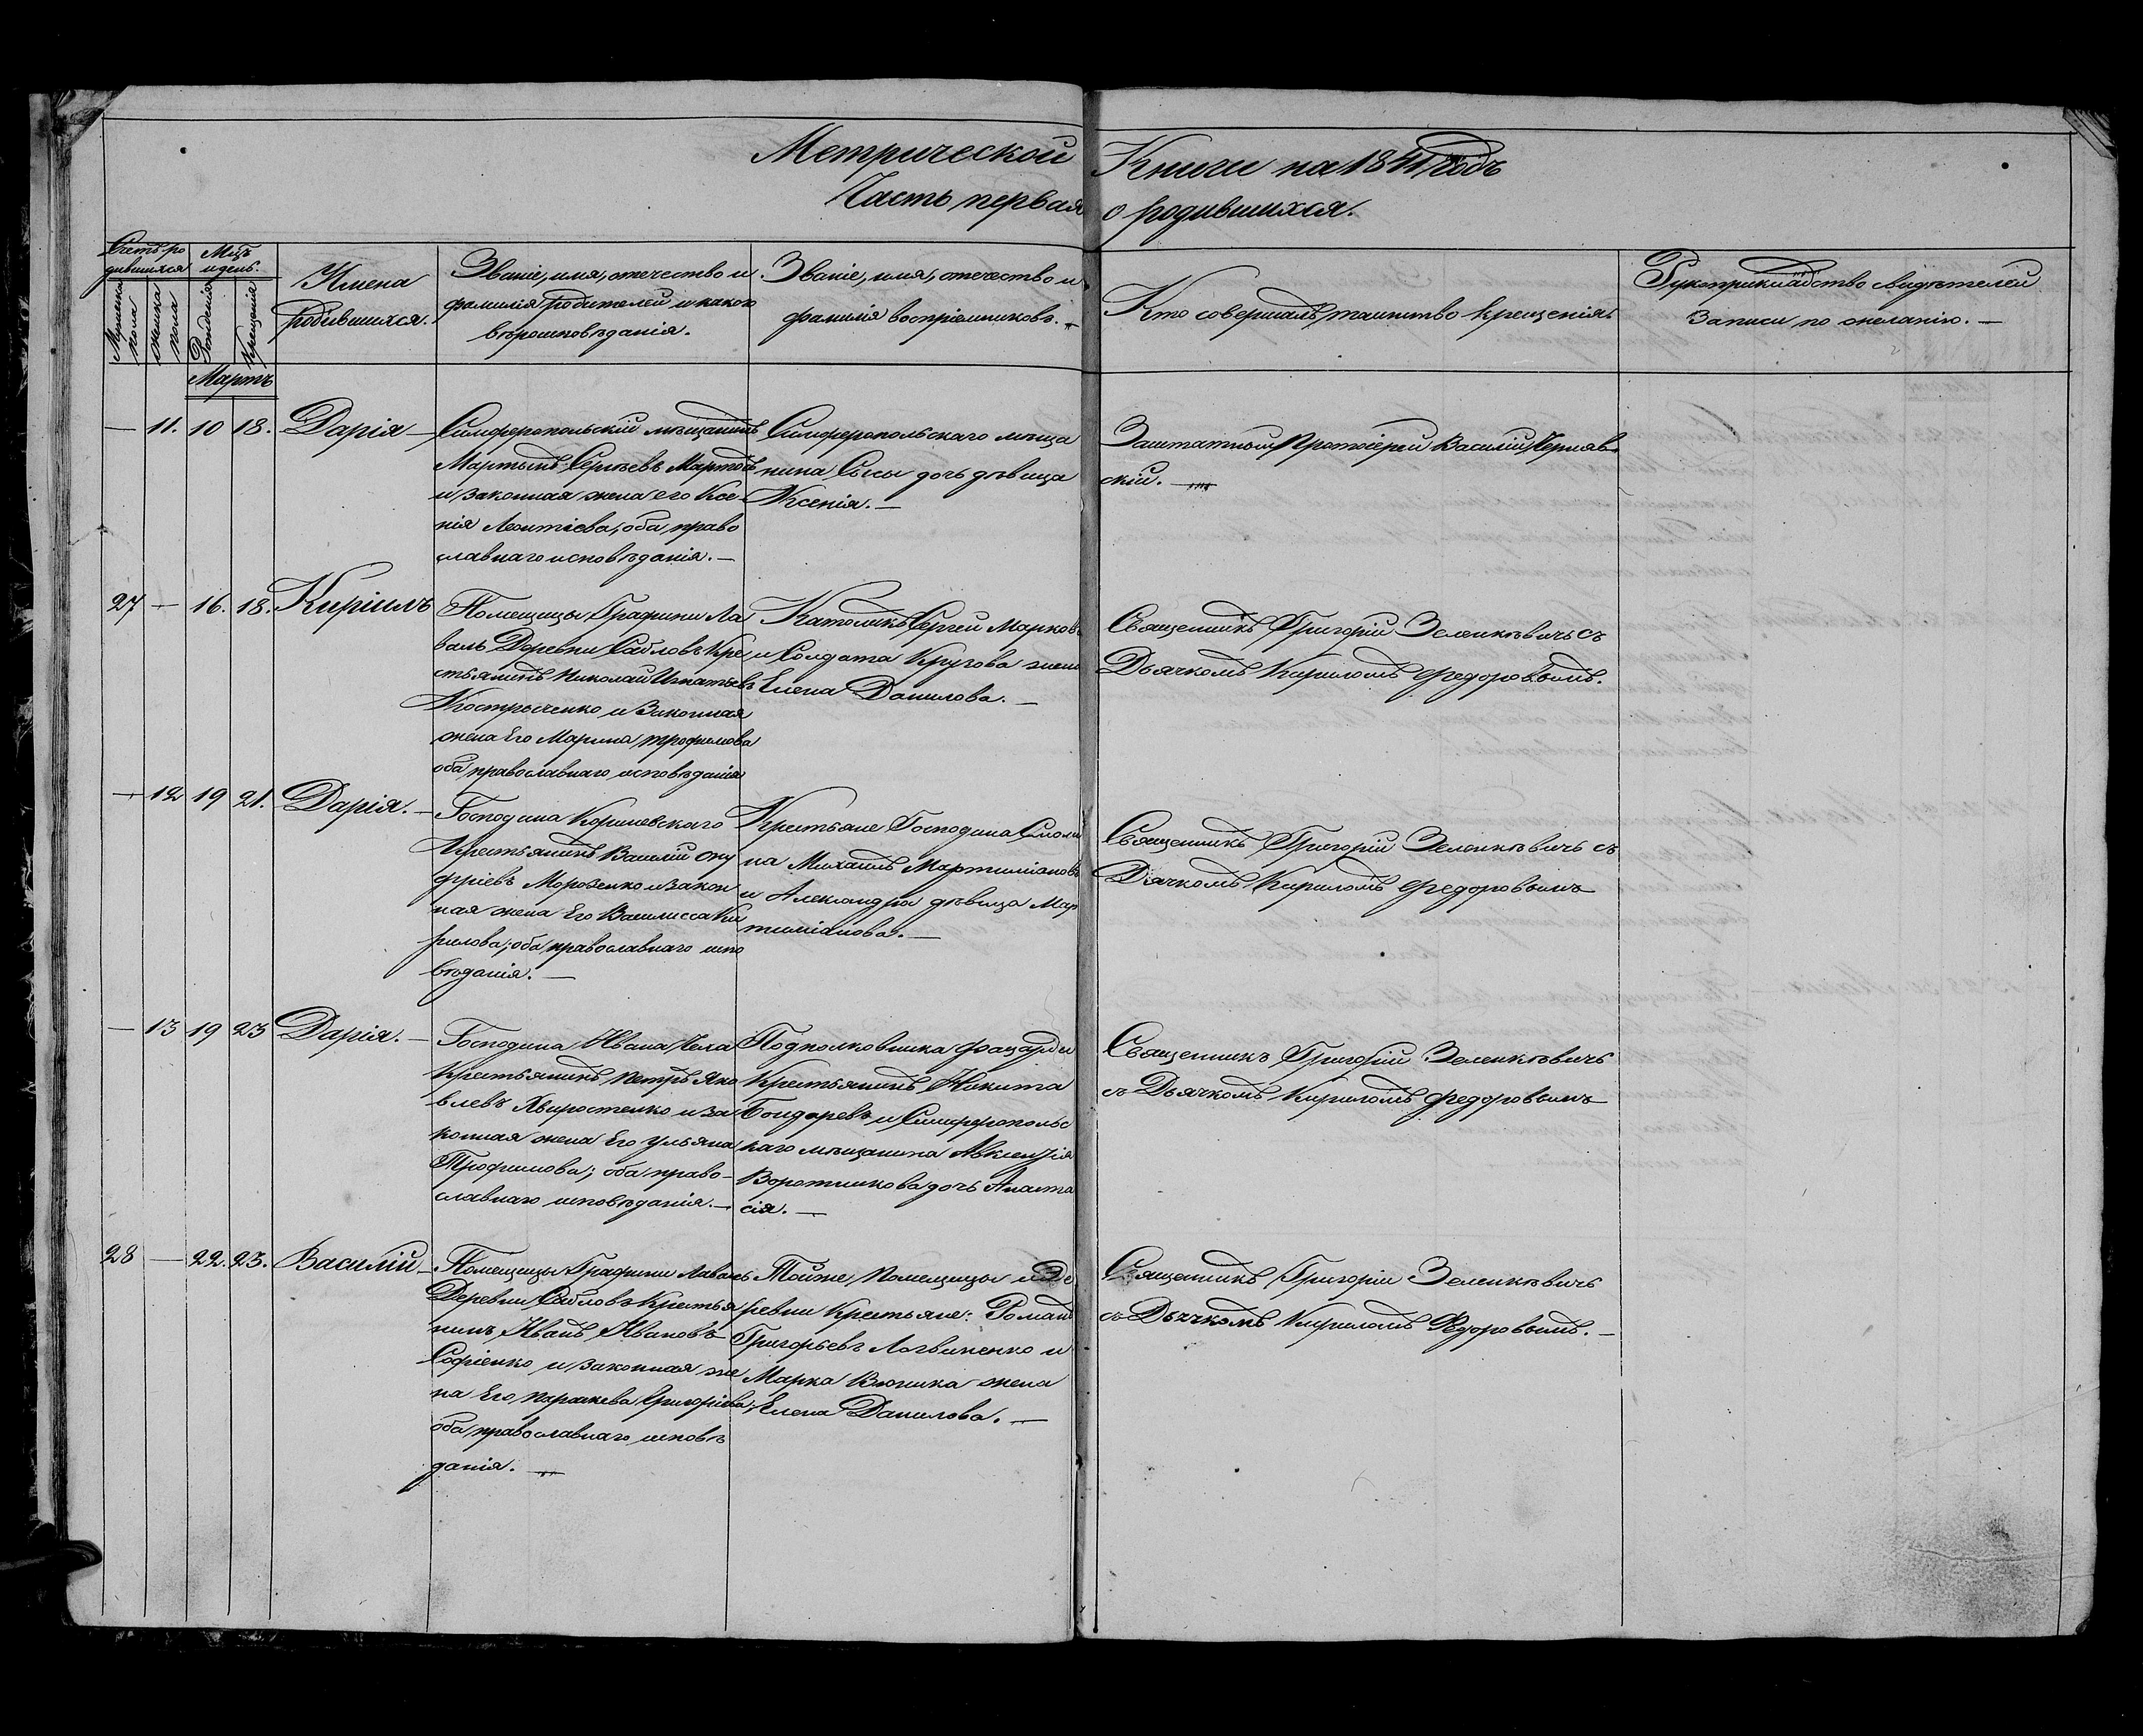 Метрической Книги на 1841 годъ
Часть первая о родившихся.
Счетъ ро
дившихся
Мцъ
и день.
Мужеска
пола
женска
пола
Рожденія
Крещенія
Имена
родившихся.
Званіе, имя, отечество и
фамилія родителей и какого
вѣроисповѣданія.
Званіе, имя, отечество и
фамилія воспріемниковъ.
Кто совершалъ таинство крещенія
Рукоприкладство свидѣтелей
Записи по желанію. —
Мартъ
— 11. 10 18. Дарія —
Симферопольскій мѣщанинъ
Мартынъ Сергѣевъ
и законная жена его Ксе-
нія Леонтіева, оба право
славнаго исповѣданія. —
Симферопольскаго мѣща
нина дочь дѣвица
Ксенія. —
Заштатный Протоіерей Василій Черняв
скій. —
27 — 16. 18. Кирилъ
Помещицы Графини Ла
валь Деревни Сабловъ Кре
стьянинъ Николай Игнатьевъ
Костыченко и Законная
жена Его Марина трофимова
оба православнаго исповѣданія
Католикъ Сергей Марковъ
и Солдата Кругова жена
Елена Данилова. —
Священникъ Григорій Зеленкѣвичъ съ
Дьячкомъ Кириломъ Федоровымъ.
— 12 19 21. Дарія. —
Господина
Крестьянинъ Василій Ону
фріевъ Морозенко и закон
ная жена Его Василисса Ки
рилова; оба православнаго испо
вѣданія. —
Крестьяне Господина
на Михаилъ Мартиміановъ
и Александра дѣвица Мар
тиміанова. —
Священникъ Григорій Зеленкѣвичъ съ
Дячкомъ Кириломъ Федоровымъ
— 13 19 23 Дарія. —
Господина Ивана
Крестьянинъ Петръ Яко
влевъ Хворостенко и за
конная жена Его Ульяна
Трофимова; оба право-
славнаго исповѣданія. —
Подполковника
Крестьянинъ Никита
Бондаревъ и Симферопольс
каго мѣщанина Авксентія
Воротникова дочь Анаста
сія. —
Священникъ Григорій Зеленкѣвичъ
съ Дьячкомъ Кириломъ Федоровымъ
28 — 22. 23. Василій —
Помещицы Графини Лаваль
Деревни Сабловъ Крестья
нинъ Иванъ Ивановъ
Софіенко и законная же
на Его Параскева Григоріева;
оба православнаго исповѣ
данія. —
Тойже Помещицы и Де
ревни Крестьяне: Романъ
Григорьевъ Логвиненко и
Марка Вюника жена
Елена Данилова. —
Священникъ Григорій Зеленкѣвичъ
съ Дьячкомъ Кириломъ Федоровымъ. —